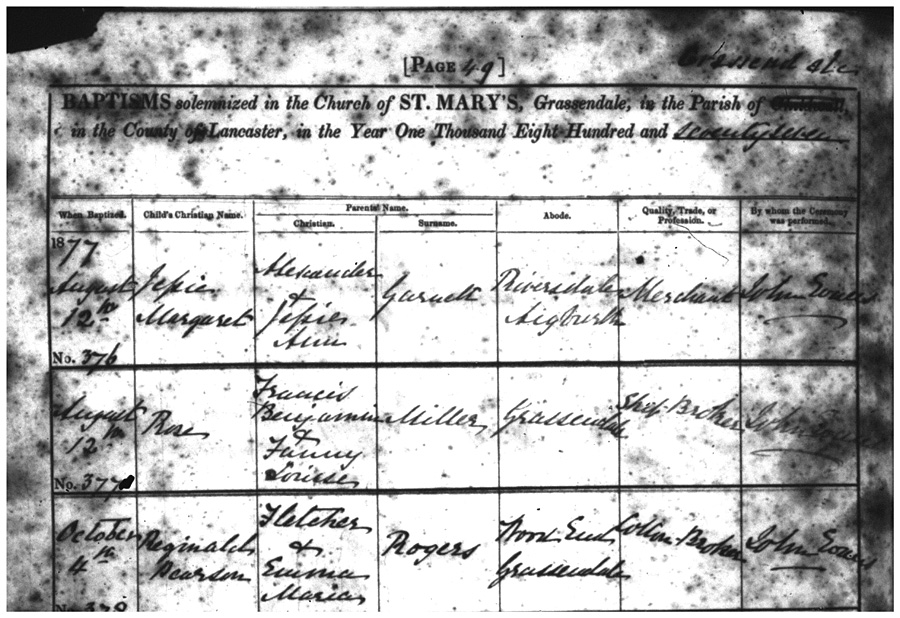 Grassendale
[PAGE 49]
BAPTISMS solemnized in the Church of ST. MARY'S, Grassendale, in the Parish of
in the County of Lancaster, in the Year One Thousand Eight Hundred and seventy seven
When Baptized. Child's Christian Name. Parents' Name. Abode. Quality, Trade, or Profession. By whom the Ceremony was performed.
Christian. Surname.
1877
August
12th
No. 376
Jessie
Margaret
Alexander
+
Jessie
Ann
Garnett
Riversdale
Aigburth
Merchant
John Evans
August
12th
No. 377
Rose
Francis
Benjamin
+
Fanny
Louisa
Miller
Grassendale
Ship Broker
John Evans
October
4th
No. 378
Reginald
Pearson
Fletcher
&
Emma
Maria
Rogers
Wood End
Grassendale
Cotton Broker
John Evans